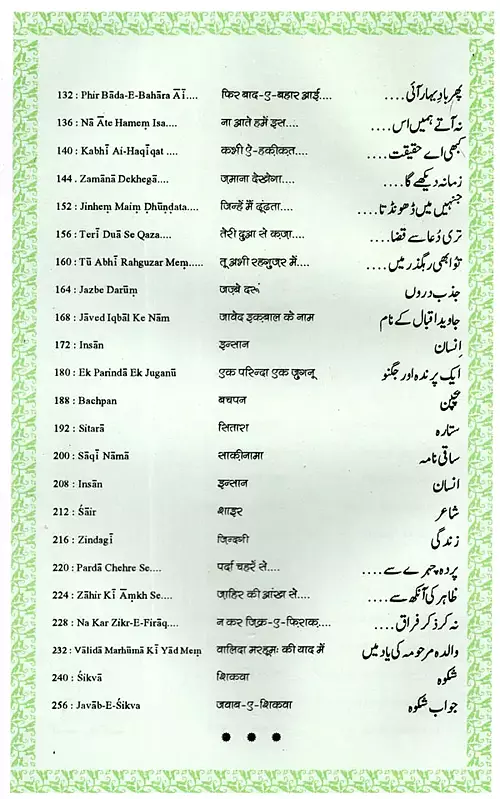 132 : Phir Bāda-E-Bahāra Āī.... फिर बाद-ए-बहार आई.... پھر بادِ بہار آئی....
136 : Nā Āte Hameṃ Isa.... ना आते हमें इस.... نہ آتے ہمیں اس....
140 : Kabhī Ai-Haqīqat .... कभी ऐ-हक़ीक़त.... کبھی اے حقیقت....
144 . Zamānā Dekhegā.... ज़माना देखेगा.... زمانہ دیکھے گا....
152 : Jinheṃ Maiṃ Ḍhūndata.... जिन्हें में ढूंढता.... جنہیں میں ڈھونڈتا....
156 : Terī Duā Se Qaza.... तेरी दुआ से क़ज़ा.... تری دُعا سے قضا....
160 : Tū Abhī Rahguzar Meṃ..... तू अभी रहगुज़र में.... تُو ابھی رہگذر میں....
164 : Jazbe Darūṃ जज़्बे दरूं جذب دروں
168 : Jāved Iqbāl Ke Nām जावेद इक़बाल के नाम جاوید اقبال کے نام
172 : Insān इन्सान اِنسان
180 : Ek Parindā Ek Juganū एक परिन्दा एक जुगनू ایک پرندہ اور جگنو
188 : Bachpan बचपन بچپن
192 : Sitarā सितारा ستارہ
200 : Sāqī Nāmā साक़ीनामा ساقی نامہ
208 : Insān इन्सान انسان
212 : Śāir शाइर شاعر
216 : Zindagī ज़िन्दगी زندگی
220 : Pardā Chehre Se.... पर्दा चहरे से.... پردہ چہرے سے....
224 : Zāhir Kī Āṃkh Se.... ज़ाहिर की आंख से.... ظاہر کی آنکھ سے....
228 : Na Kar Zikr-E-Firāq.... न कर ज़िक्र-ए-फ़िराक़.... نہ کر ذکر فراق....
232 : Vālidā Marhūmā Kī Yād Meṃ वालिदा मरहूमः की याद में والدہ مرحومہ کی یاد میں
240 : Śikvā शिकवा شکوہ
256 : Javāb-E-Śikva जवाब-ए-शिकवा جواب شکوہ